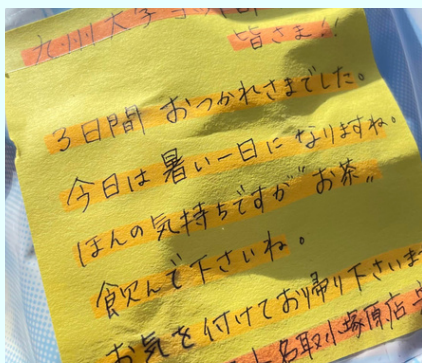 九州大学
皆さま!!
3日間 おつかれさまでした。
今日は暑い一日になりますね。
ほんの気持ちですが"お茶"
飲んで下さいね。
お気を付けてお帰り下さいま
名取小塚原店